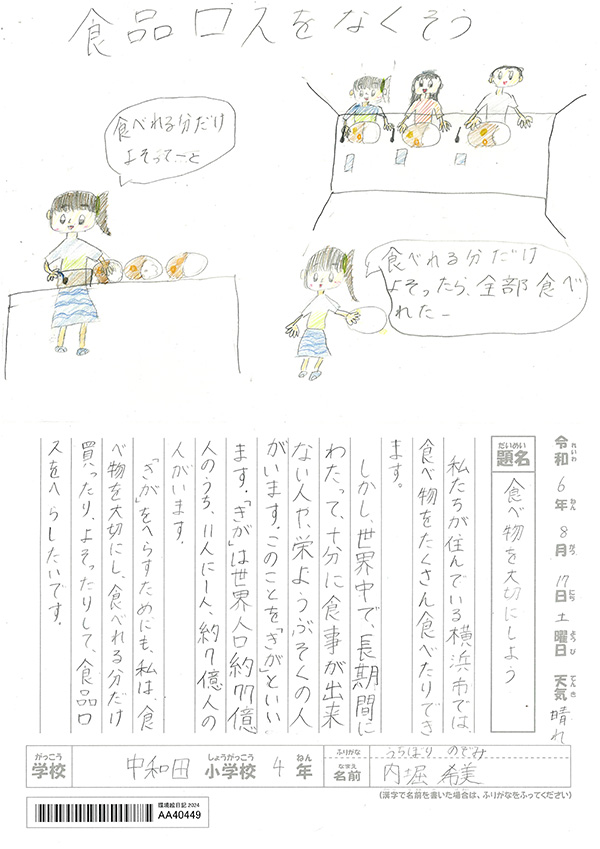 食品ロスをなくそう
食べれる分だけ
よそってーと
食べれる分だけ
よそったら、全部食べ
れたー
令和6年8月17日土曜日 天気 晴れ
れいわ ねん がつ にち ようび てんき
だいめい
題名
食べ物を大切にしよう
私たちが住んでいる横浜市では、
食べ物をたくさん食べたりでき
ます。
しかし、世界中で、長期間に
わたって、十分に食事が出来
ない人や、栄ようぶそくの人
がいます。このことを「きが」といい
ます。「きが」は世界人口約77億
人のうち、11人に1人、約7億人の
人がいます。
「きが」をへらすためにも、私は、食
べ物を大切にし、食べれる分だけ
買ったり、よそったりして、食品ロ
スをへらしたいです。
がっこう しょうがっこう ねん
学校 中和田 小学校 4年
ふりがな うちぼり のぞみ
なまえ
名前 内堀 希美
(漢字で名前を書いた場合は、ふりがなをふってください)
環境絵日記2024
AA40449